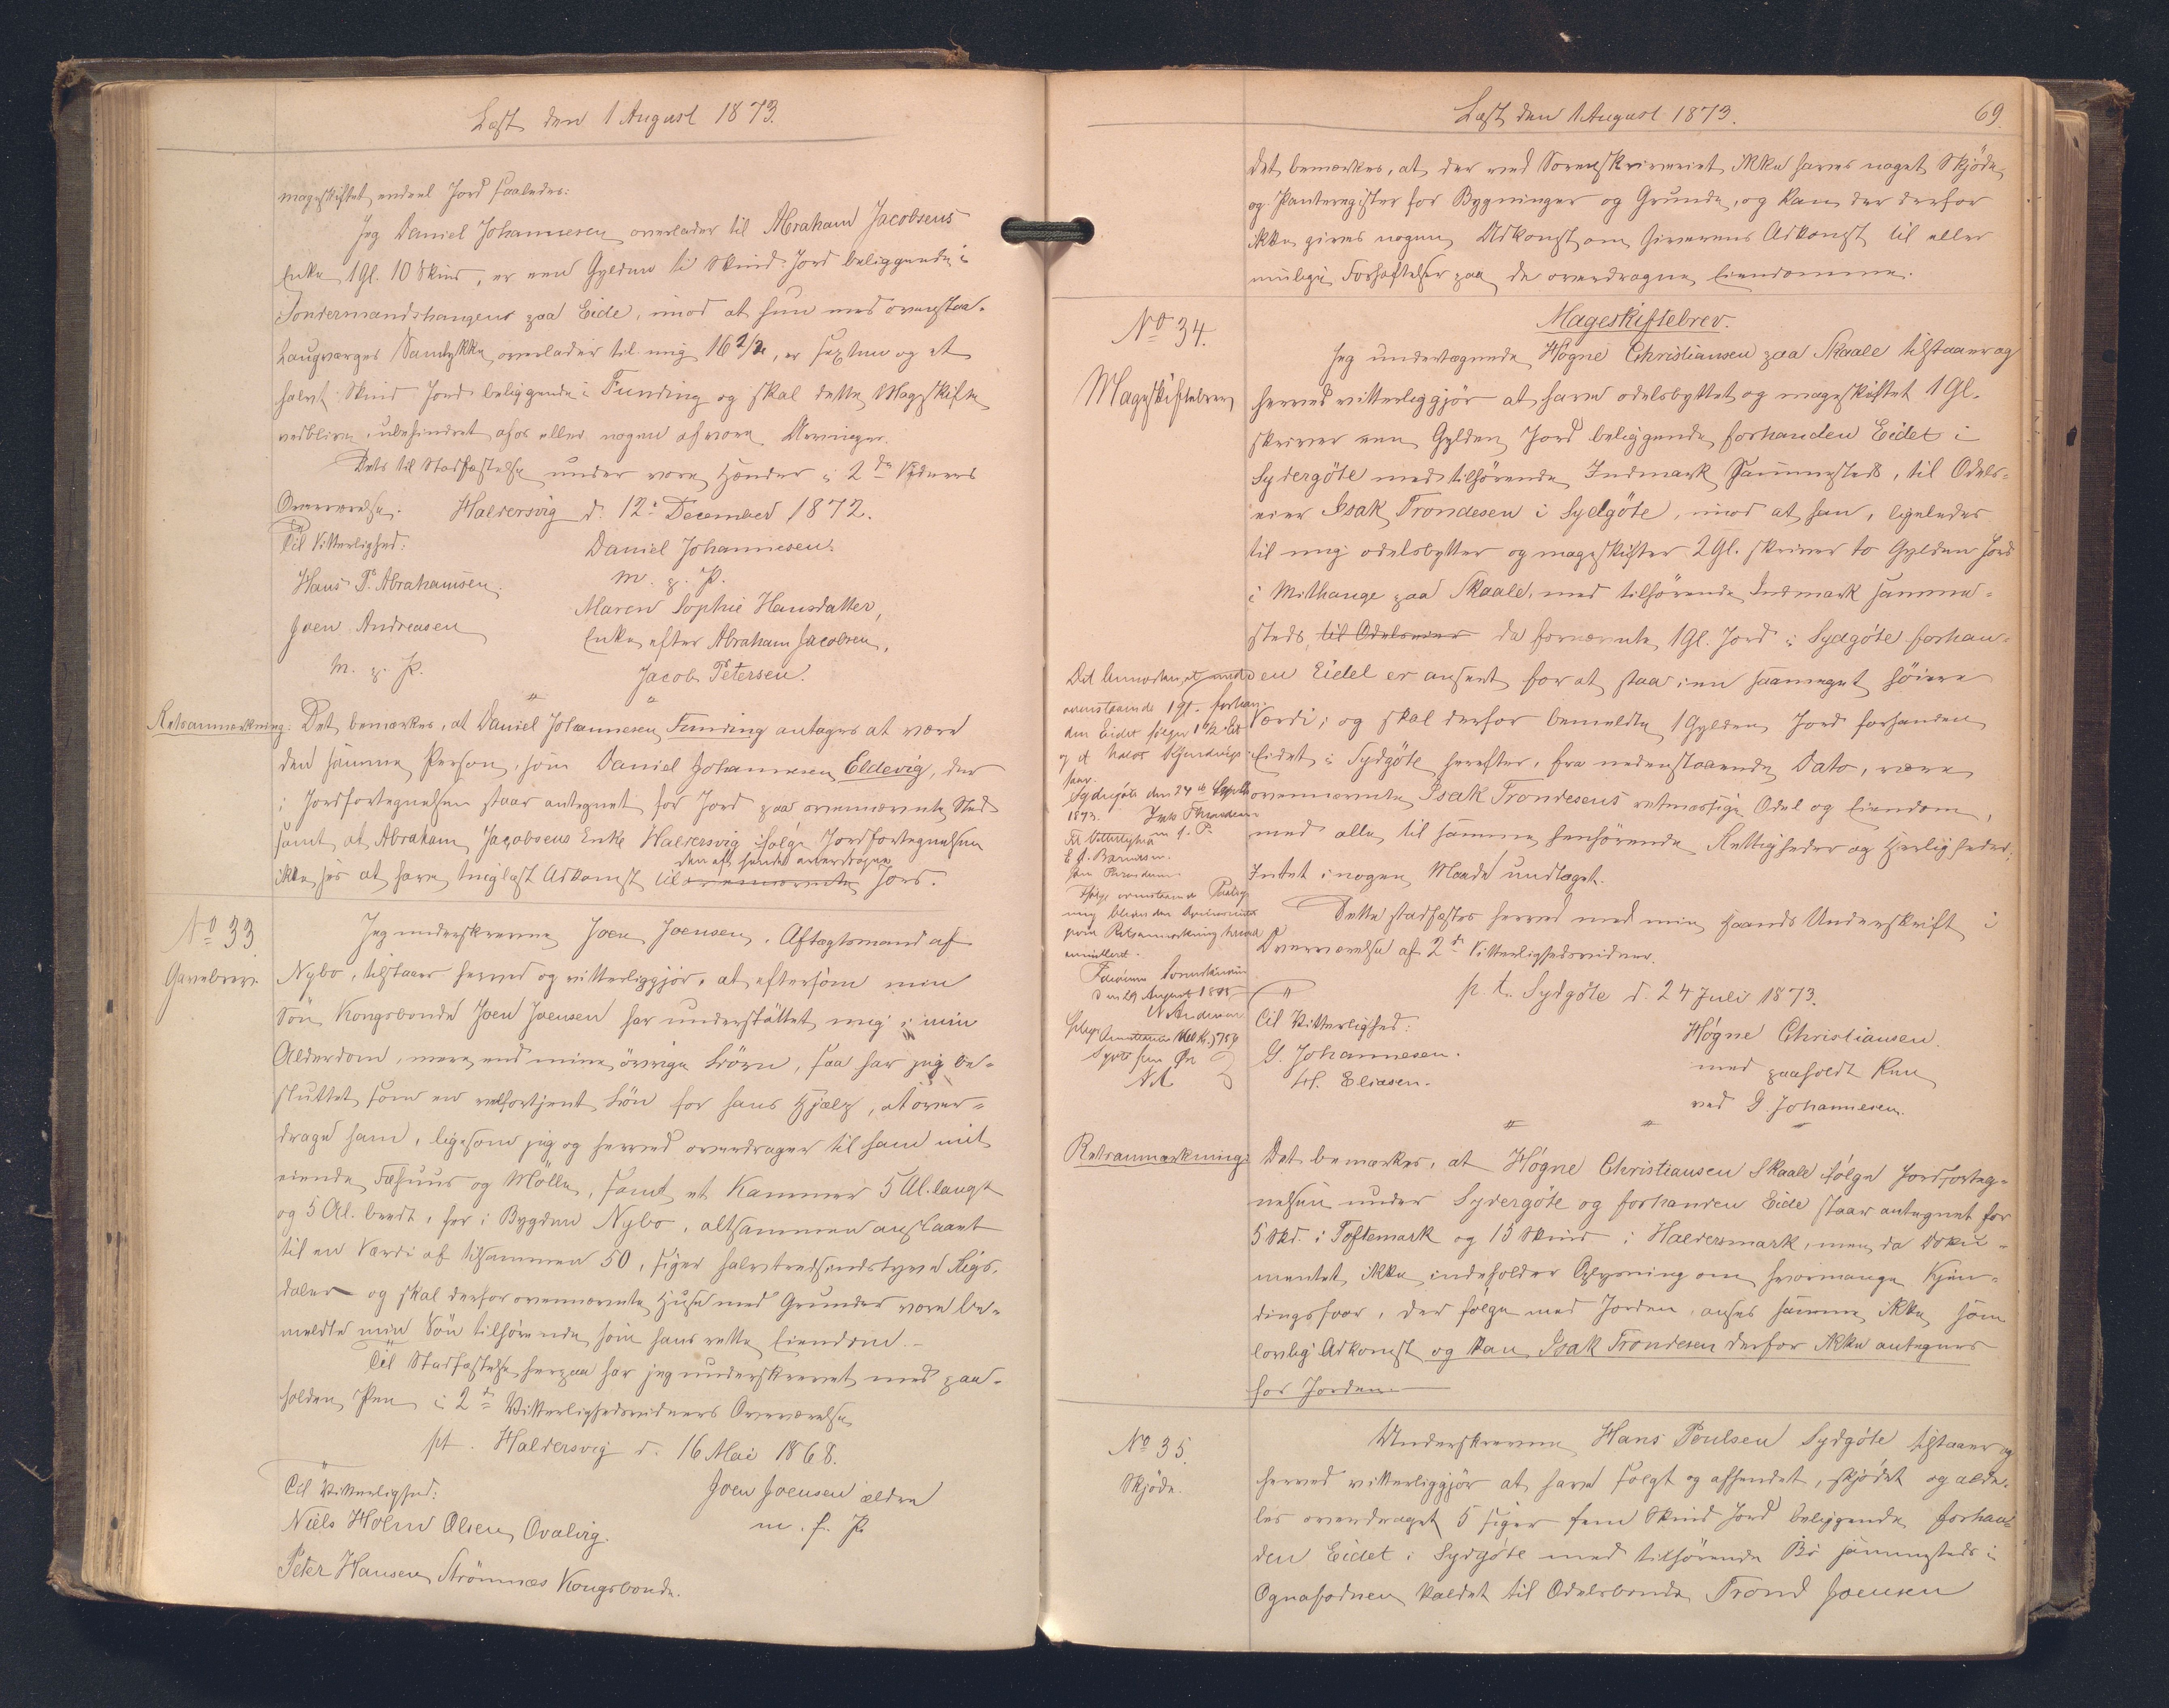 Læst den 1 August 1873.
mageskiftet endeel Jord saaledes:
Jeg Daniel Johannesen overlader til Abraham Jacobsens
Enke 1 Gl. 10 Skind, er een Gylden ti Skind Jord beliggende i
Sondermandshaugens paa Eide, imod at hun med overstaa-
Laugværges Samtykke overlader til mig 16 1/2, er sexten og et
halvt Skind Jord beliggende i Funding og skal dette Mageskifte
vedblive, ubehindret af os eller nogen af vore Arvinger.
Dets til Stadfæstelse under vore Hænder i 2de Vidners
Overværelse. Haldersvig d. 12 December 1872.
Til Vitterlighed:
Daniel Johannesen.
Hans P. Abrahamsen.
m. p. P.
Joen Andreasen
Maren Sophie Hansdatter,
m. p. P.
Enke efter Abraham Jacobsen,
Jacob Petersen.
Retsanmærkning: Det bemærkes, at Daniel Johannesen Funding antages at være
den samme Person, som Daniel Johannesen Eldevig, der
i Jordfortegnelsen staar antegnet for Jord paa ovennævnte Sted
samt at Abraham Jacobsens Enke Haldersvig ifølge Jordfortegnelsen
den af hende overdragne
ikke sees at have tinglæst Adkomst til ovennævnte Jord.
No 33.
Gavebrev.
Jeg underskrevne Joen Joensen, Aftægtsmand af
Nybo, tilstaaer herved og vitterliggjør, at eftersom min
Søn Kongsbonde Joen Joensen har understøttet mig i min
Alderdom, mere end mine øvrige Børn, saa har jeg be-
sluttet som en velfortjent Løn for hans Hjælp, at over-
drage ham, ligesom jeg og herved overdrager til ham mit
eiende Fæhuus og Mølle, samt et Kammer 5 Al. langt
og 5 Al. bredt, her i Bygden Nybo, altsammen anslaaet
til en Værdi af tilsammen 50, siger halvtredsindstyve Rigs-
daler - og skal derfor ovennævnte Huse med Grunder være be-
meldte min Søn tilhørende som hans rette Eiendom.-
Til Stadfæstelse herpaa har jeg underskrevet med paa-
holden Pen i 2de Vitterlighedsvidners Overværelse
pt. Haldersvig d. 16 Mai 1868.
Til Vitterlighed:
Joen Joensen ældre
Niels Holm Olsen, Qvalvig.
m. f. P.
Peter Hansen Strömnæs Kongsbonde.
Læst den 1 August 1873.
69.
Det bemærkes, at der ved Sorenskriveriet ikke haves noget Skjøde
og Panteregister for Bygninger og Grunde, og kan der derfor
ikke gives nogen Udkomst om Giverens Adkomst til eller
mulige Forhæftelser paa de overdragne Eiendomme.
No 34.
Mageskiftebrev
Mageskiftebrev.
Jeg undertegnede Høgne Christiansen paa Skaale tilstaaer og
herved vitterliggjør at have odelsbyttet og mageskiftet 1 Gl.
skriver een Gylden Jord beliggende forhanden Eidet i
Sydergöte med tilhørende Indmark sammesteds, til Odels-
eier Isak Trondesen i Sydgöte, imod at han, ligeledes
til mig odelsbytter og mageskifter 2 Gl. skriver to Gylden Jord
i Mithauge paa Skaale, med tilhørende Indmark samme-
steds, til Odelseier da fornævnte 1 Gl. Jord i Sydgöte forhan-
den Eidet er anseet for at staa i en saameget høiere
Værdi; og skal derfor bemeldte 1 Gylden Jord forhanden
Eidet i Sydgöte herefter, fra nedenstaaende Dato, være
ovennævnte Isak Trondesens retmæssige Odel og Eiendom,
med alle til samme henhørende Rettigheder og Herligheder;
Intet i nogen Maade undtaget.
Dette stadfæstes herved med min Haands Underskrift i
Overværelse af 2de Vitterlighedsvidner.
p. t. Sydgöte d. 24 Juli 1873.
Til Vitterlighed:
Høgne Christiansen.
G. Johannesen.
med paaholdt Pen
H. Eliasen.
ved G. Johannesen.
Det bemærkes, at med
ovenstaaende 1 Gl. forhan-
den Eidet følger
Sydregöte den 24
1873.
Til Vitterlighed
m. f. P.
ovenstaaende
Retsanmærkning herved
annulleret.
Færøernes Sorenskriveri
den 29 August 1885
N Andersen
NA
Retsanmærkning: Det bemærkes, at Høgne Christiansen Skaale ifølge Jordforteg-
nelsen under Sydergöte og forhanden Eide staar antegnet for
5 Skd. i Toftemark og 15 Skind i Haldersmark, men da Doku-
mentet ikke indeholder Oplysning om hvormange Kjen-
dingsfaar, der følge med Jorden, ansees samme ikke som
lovlig Adkomst og kan Isak Trondesen derfor ikke antegnes
for Jorden.
No 35.
Skjøde.
Underskrevne Hans Poulsen Sydgöte tilstaaer og
herved vitterliggjør at have solgt og afhendet, skjødet og alde-
les overdraget 5 siger fem Skind Jord beliggende forhan-
den Eidet i Sydgöte med tilhørende Bö sammesteds i
Ognafodnen kaldet til Odelsbonde Trond Joensen